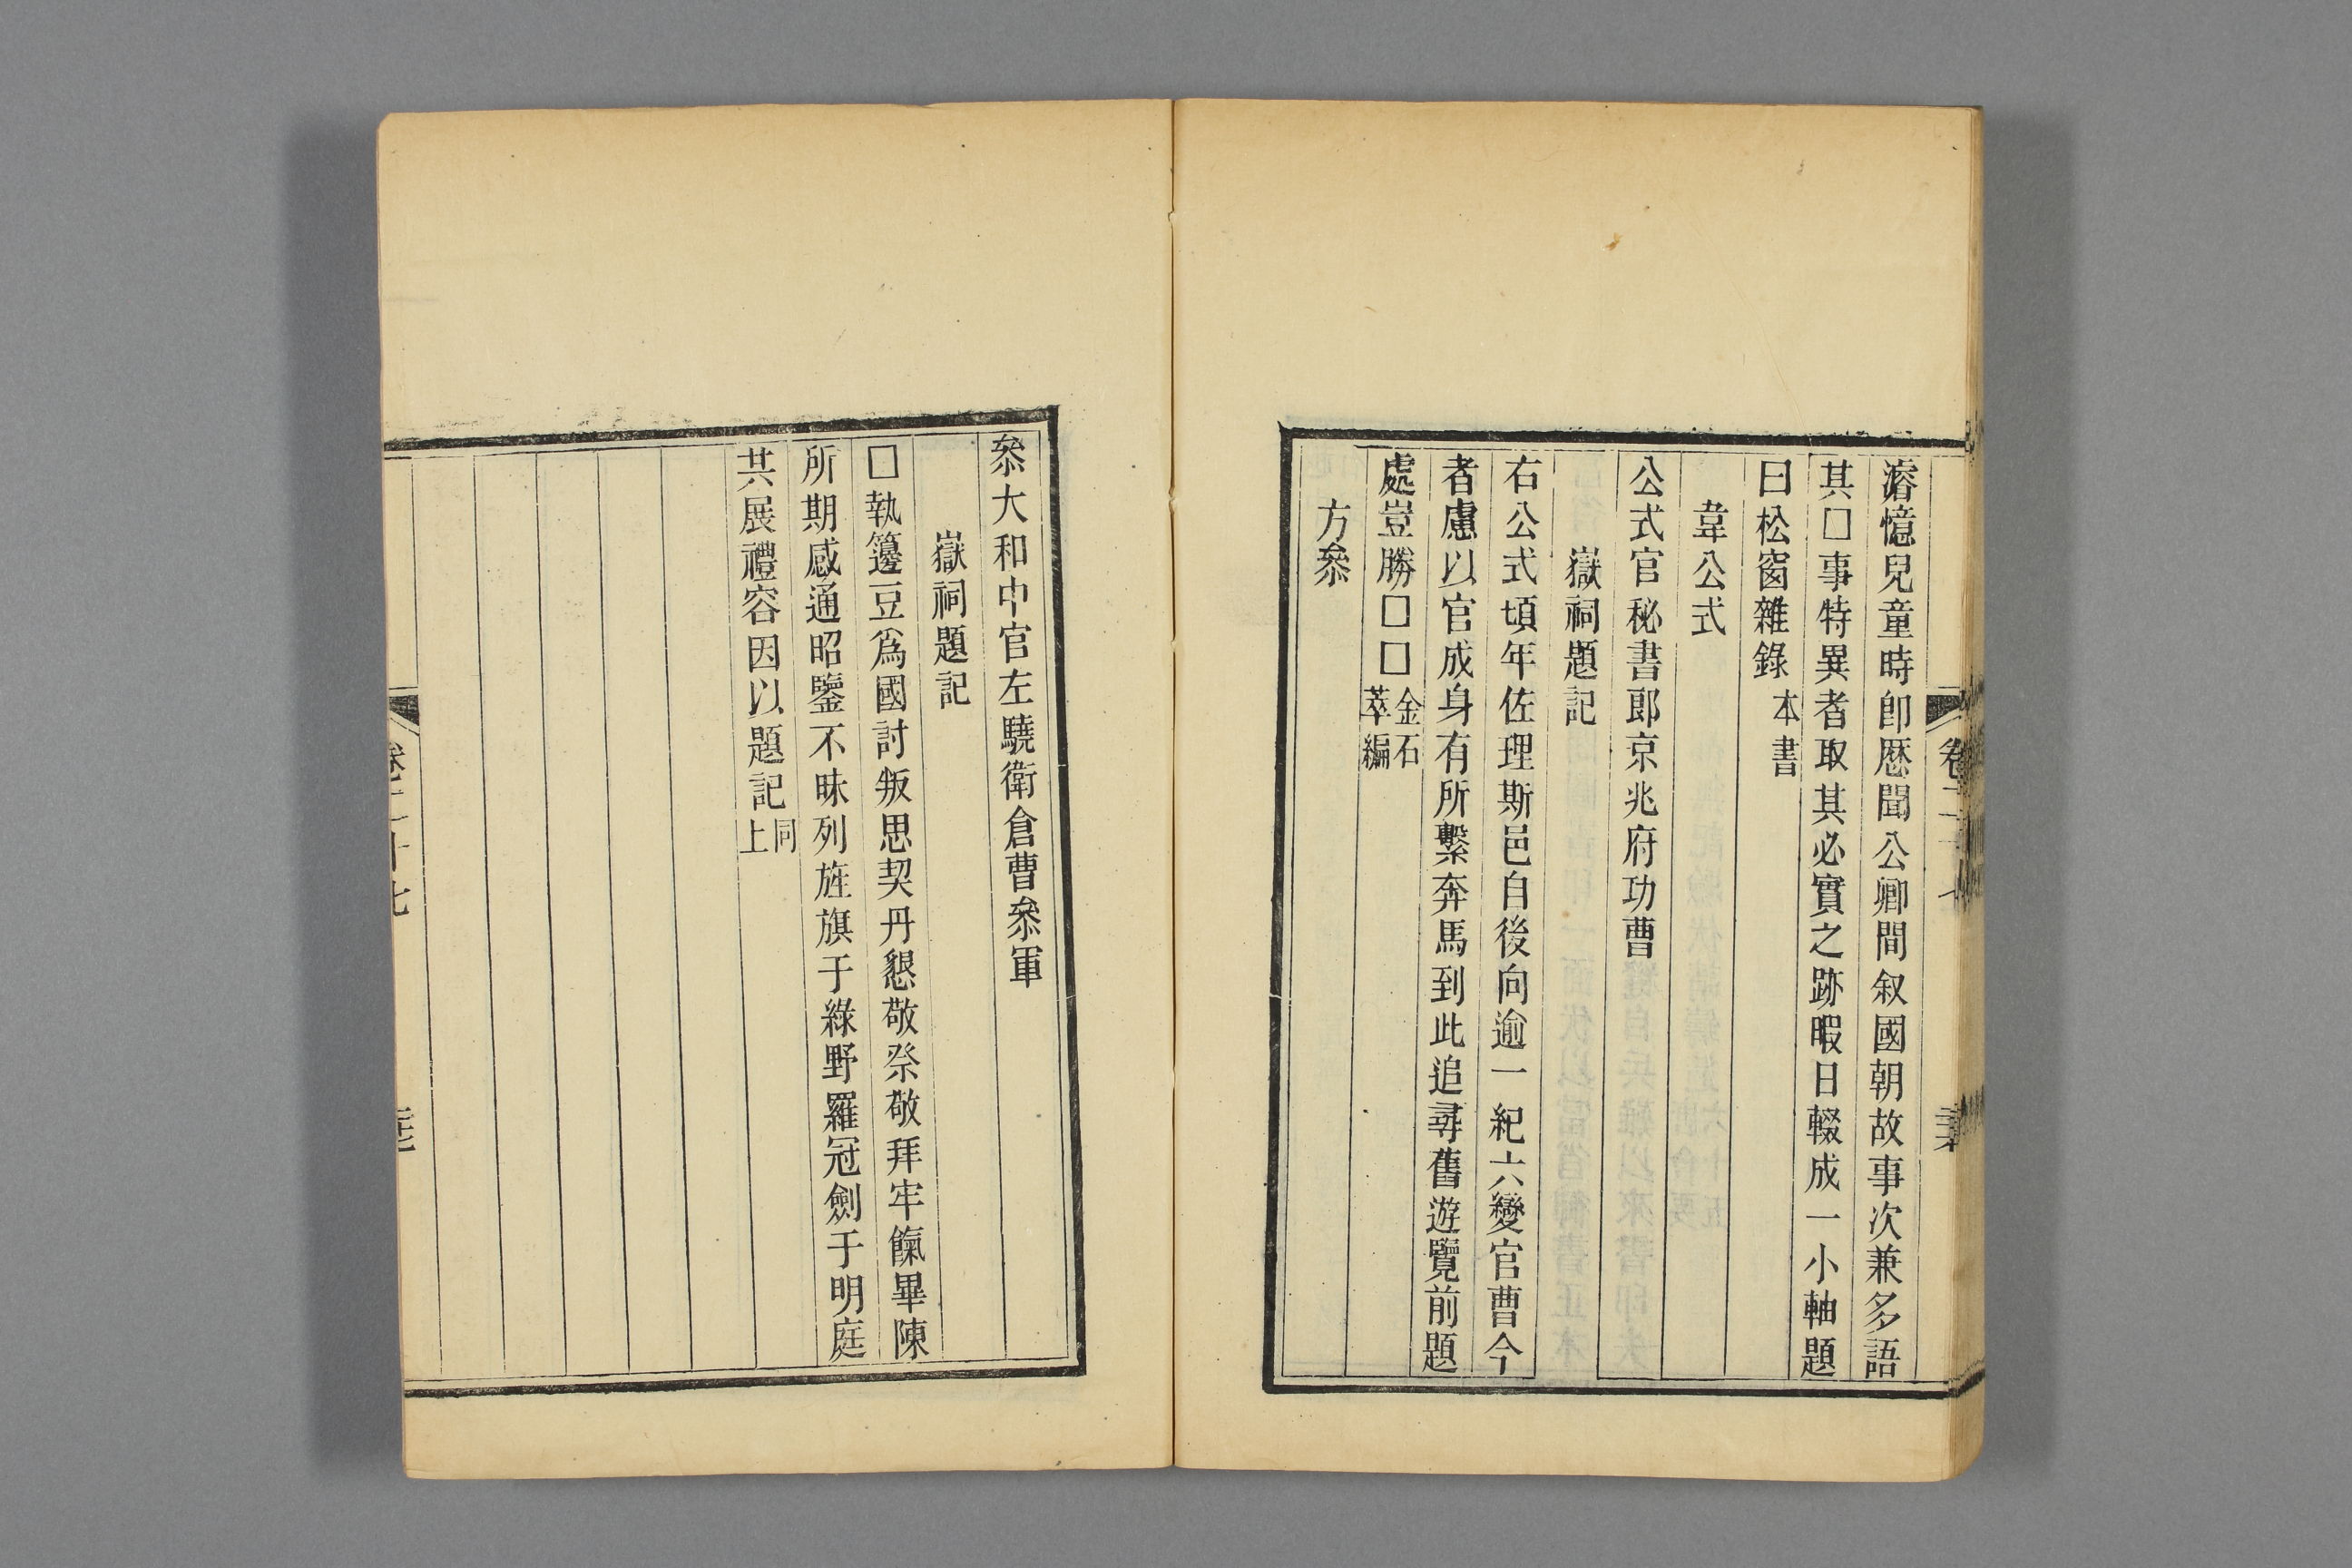 濬憶兒童時卽厯聞公卿間叙國朝故事次兼多語
其□事特異者取其必實之跡暇日輟成一小軸題
曰松窗雜錄本書
韋公式
公式官秘書郎京兆府功曹
嶽祠題記
右公式頃年佐理斯邑自後向逾一紀六變官曹今
者慮以官成身有所繫奔馬到此追尋舊遊覽前題
處豈勝□□金石萃編
方叅
叅大和中官左驍衛倉曹叅軍
嶽祠題記
□執籩豆爲國討叛思契丹懇敬祭敬拜牢餼畢陳
所期感通昭鑒不昧列旌旗于綠野羅冠劍于明庭
共展禮容因以題記同上
卷二十七